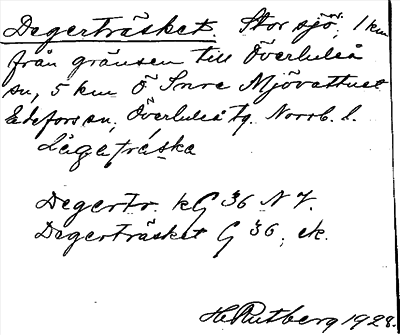 Degerträsket. Stor sjö, 1 km
från gränsen till Överluleå
sn, 5 km Ö Inre Mjövattnet
Edefors sn, Överluleå tg. Norrb. l.
Lägaträska
Degertr. kG 36 NV.
Degerträsket G 36, ek.
H. Rutberg 1928.